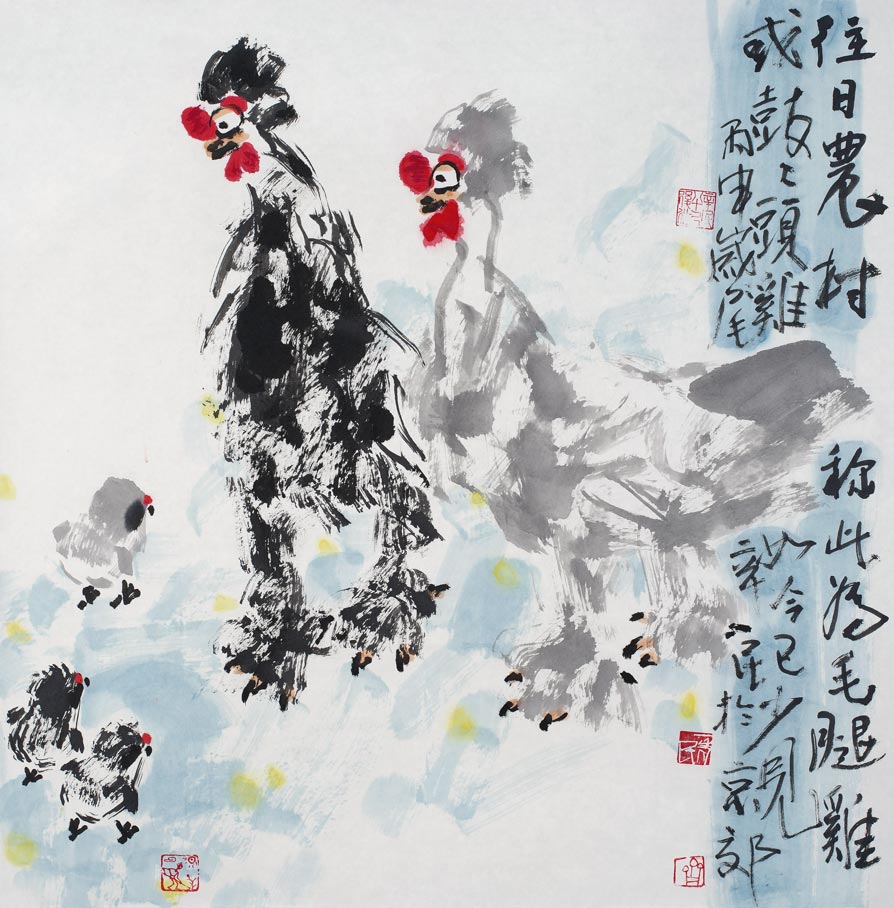 往日農村称此為毛腿雞
或鼓々頭雞如今已少見
丙申歲尾於京郊